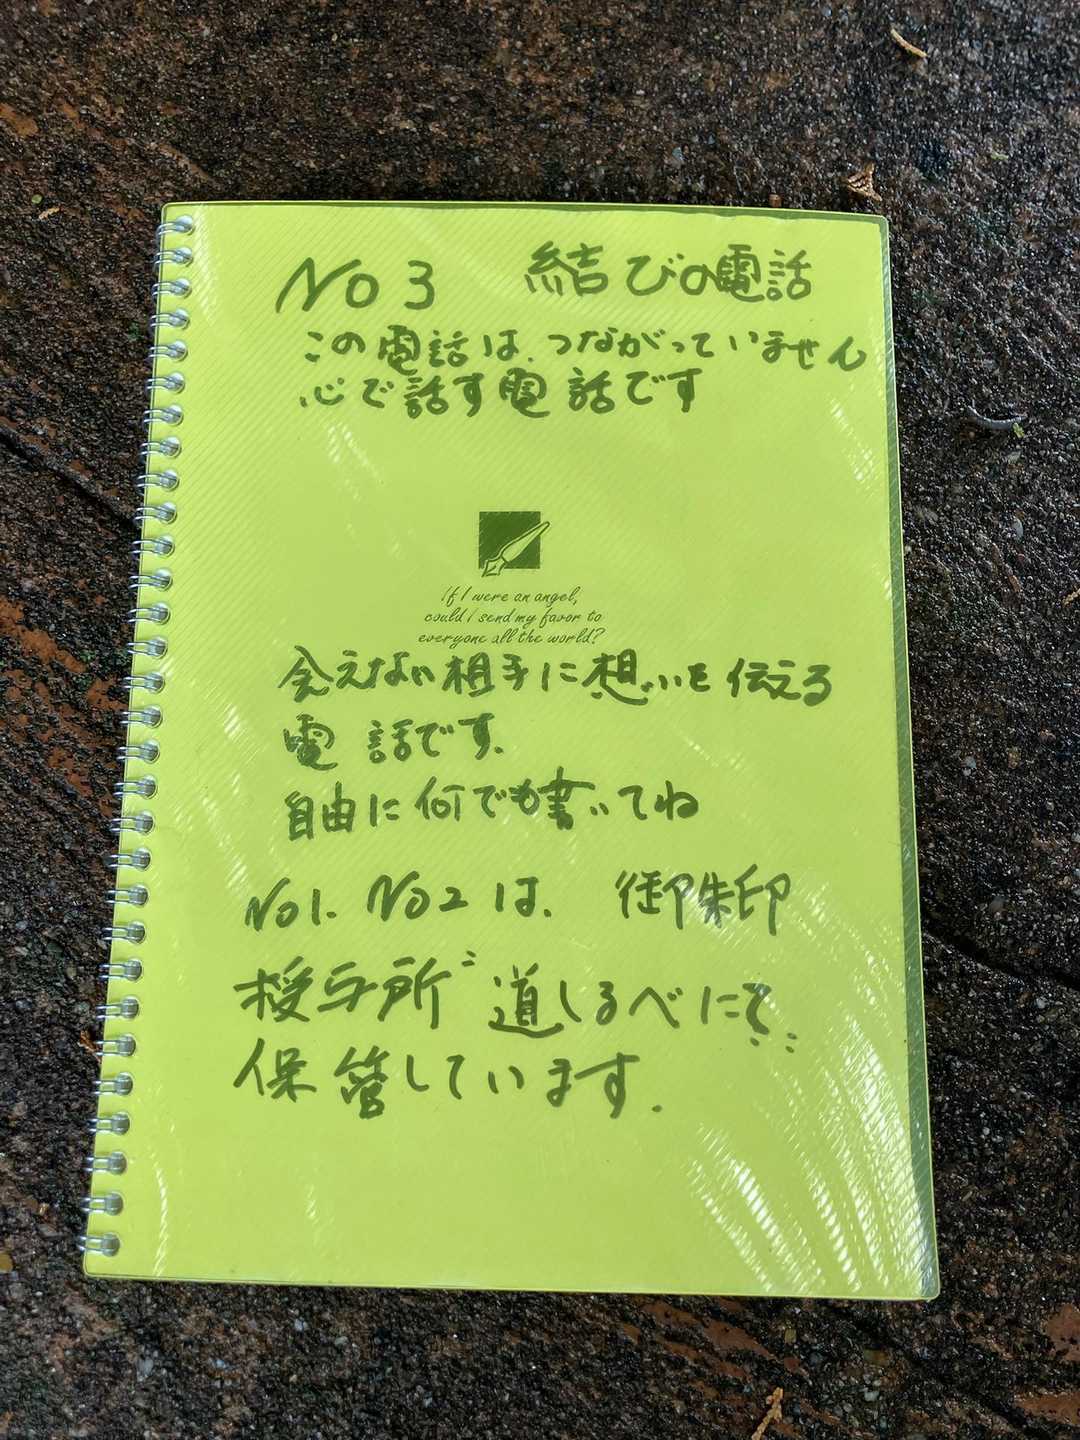 No 3 結びの電話
この電話は、つながっていません
心で話す電話です
If I were an angel,
could I send my favor to
everyone all the world?
会えない相手に想いを伝える
電話です。
自由に何でも書いてね
No1. No2は、御朱印
授与所〝道しるべにて〟
保管しています.